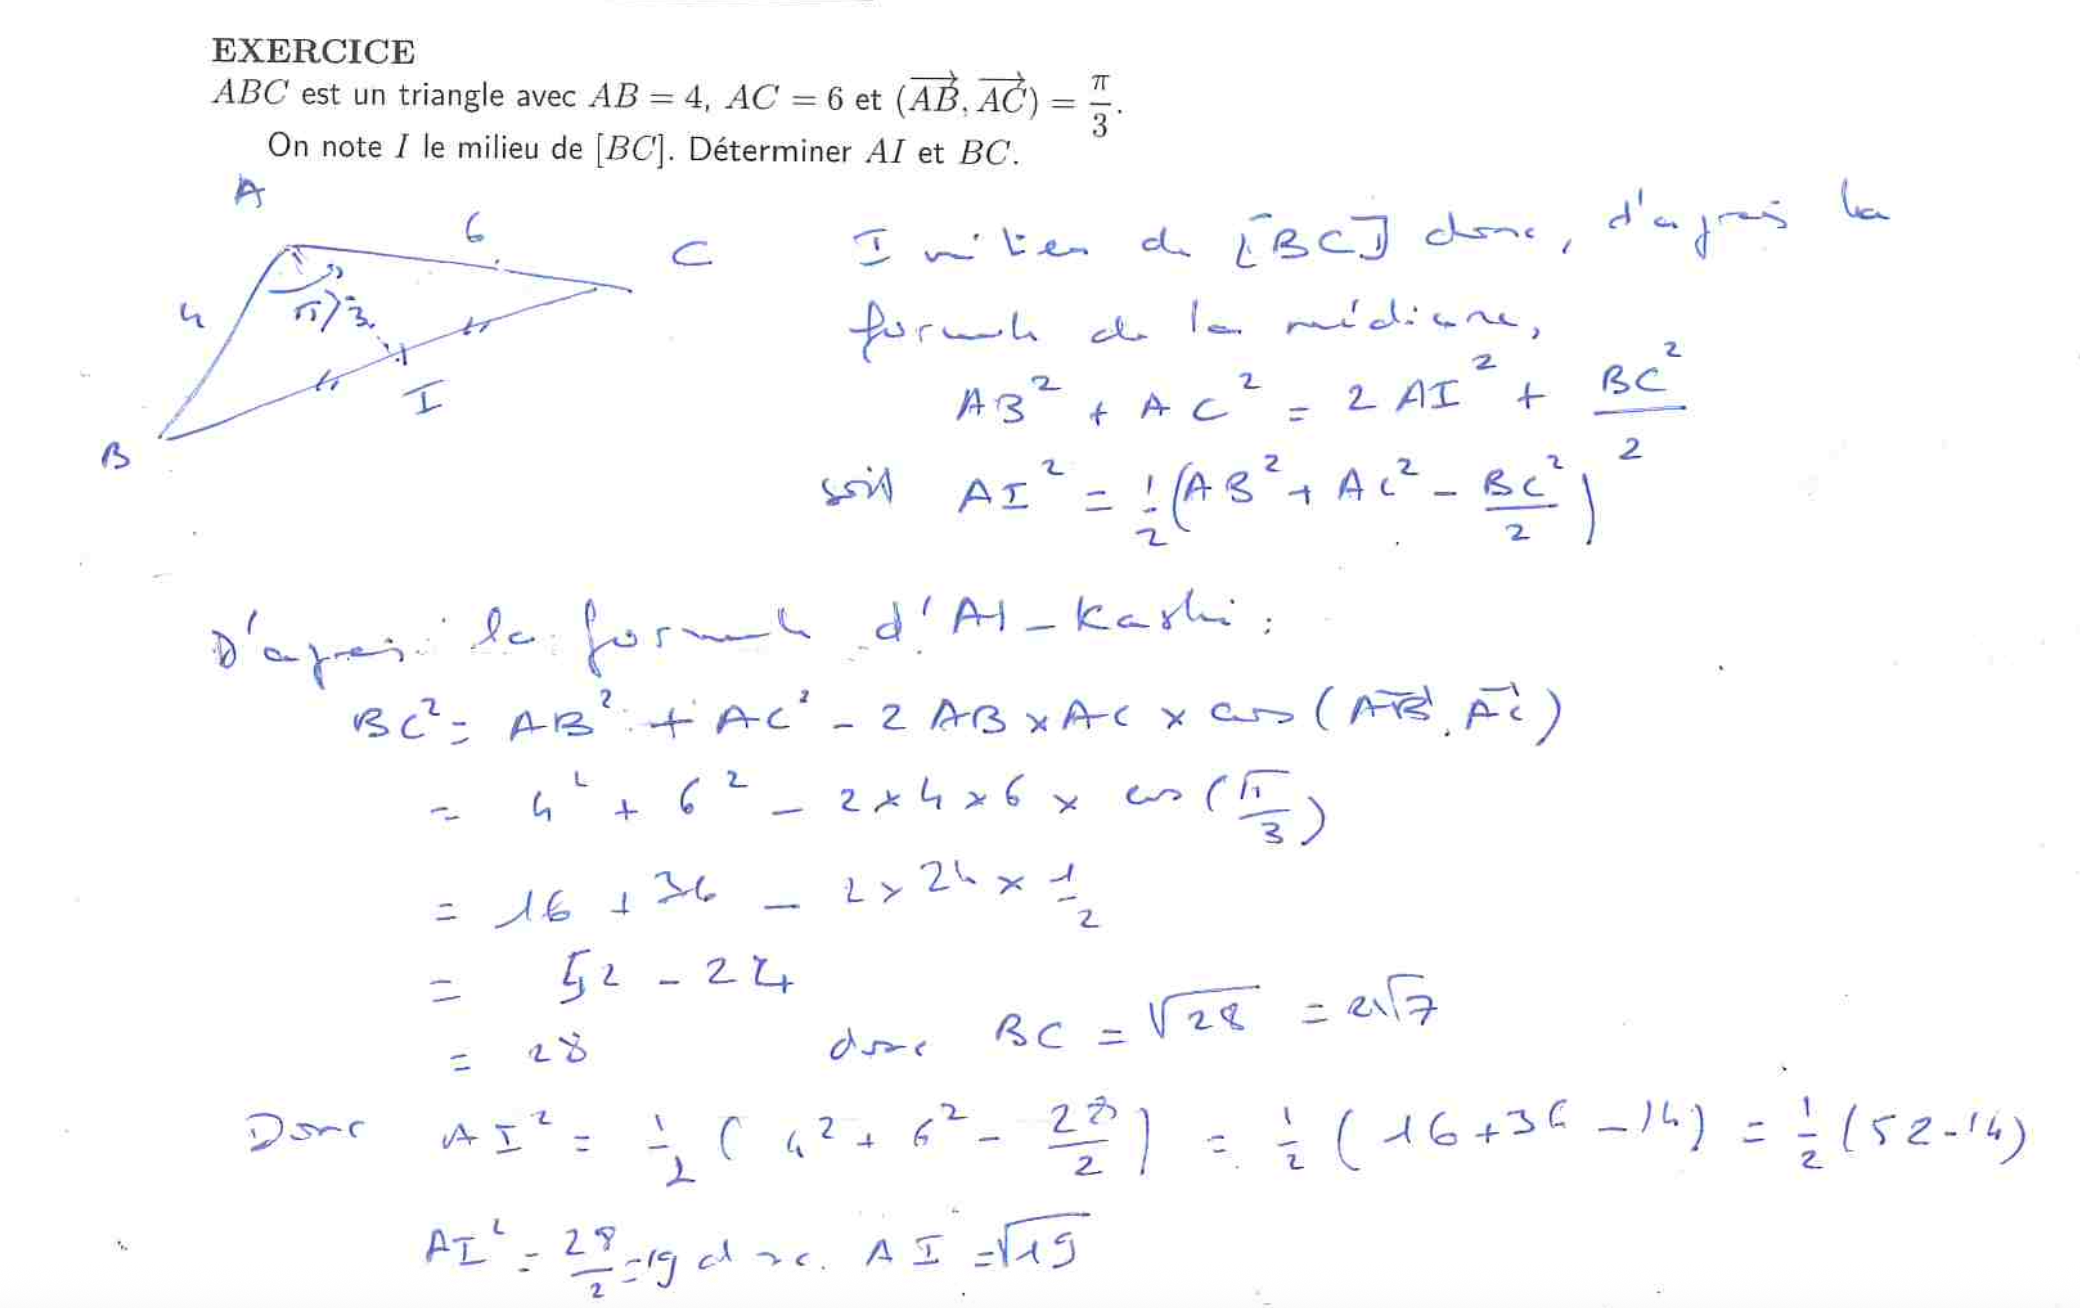 EXERCICE
ABC est un triangle avec AB = 4, AC = 6 et (\overrightarrow{AB}, \overrightarrow{AC}) = π/3.
On note I le milieu de [BC]. Déterminer AI et BC.
A
6
C
4
π/3
I
B
I milieu de [BC] donc, d'après la
formule de la médiane,
AB² + AC² = 2 AI² + BC²/2
soit AI² = 1/2 (AB² + AC² - BC²/2)
D'après la formule d'Al-Kashi :
BC² = AB² + AC² - 2 AB × AC × cos(\overrightarrow{AB}, \overrightarrow{AC})
= 4² + 6² - 2 × 4 × 6 × cos(π/3)
= 16 + 36 - 2 × 24 × 1/2
= 52 - 24
= 28 donc BC = √28 = 2√7
Donc AI² = 1/2 (4² + 6² - 28/2) = 1/2 (16 + 36 - 14) = 1/2 (52 - 14)
AI² = 28/2 = 19 donc AI = √19